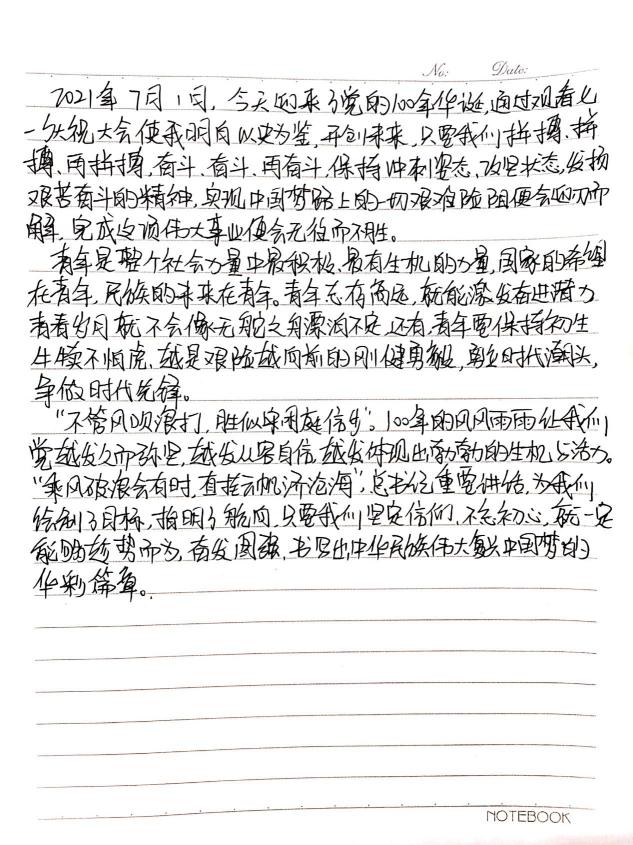 No:  Date:
2021年7月1日，今天迎来了党的100年华诞，通过观看七
一庆祝大会使我明白以史为鉴，开创未来，只要我们拼搏、拼
搏、再拼搏，奋斗、奋斗、再奋斗，保持冲刺姿态、攻坚状态，发扬
艰苦奋斗的精神，实现中国梦路上的一切艰难险阻便会迎刃而
解，完成这项伟大事业便会无往而不胜。
青年是整个社会力量中最积极、最有生机的力量，国家的希望
在青年，民族的未来在青年。青年志存高远，就能激发奋进潜力
青春岁月就不会像无舵之舟漂泊不定，还有，青年要保持初生
牛犊不怕虎、越是艰险越向前的刚健勇毅，勇立时代潮头，
争做时代先锋。
“不管风吹浪打，胜似闲庭信步”。100年的风风雨雨让我们
党越发久而弥坚，越发从容自信，越发体现出勃勃的生机与活力。
“乘风破浪会有时，直挂云帆济沧海”，总书记重要讲话，为我们
绘制了目标，指明了航向，只要我们坚定信仰、不忘初心，就一定
能够趁势而为，奋发图强，书写出中华民族伟大复兴中国梦的
华彩篇章。
NOTEBOOK